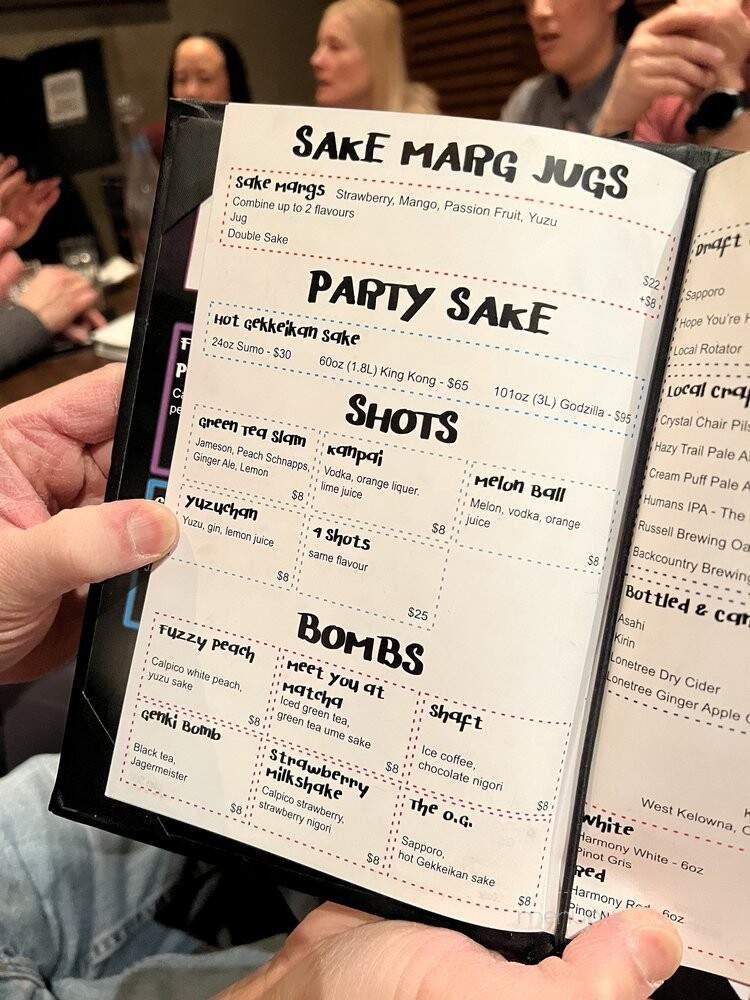 SAKE MARG JUGS
Sake Margs Strawberry, Mango, Passion Fruit, Yuzu
Combine up to 2 flavours
Jug $22
Double Sake +$8
PARTY SAKE
Hot Gekkeikan Sake
24oz Sumo - $30 60oz (1.8L) King Kong - $65 101oz (3L) Godzilla - $95
SHOTS
Green Tea Slam
Jameson, Peach Schnapps,
Ginger Ale, Lemon
$8
Kanpai
Vodka, orange liquer.
lime juice
$8
Melon Ball
Melon, vodka, orange
juice
$8
Yuzuchan
Yuzu, gin, lemon juice
$8
4 Shots
same flavour
$25
BOMBS
Fuzzy Peach
Calpico white peach,
yuzu sake
$8
Meet you at
Matcha
Iced green tea,
green tea ume sake
$8
Shaft
Ice coffee,
chocolate nigori
$8
Genki Bomb
Black tea,
Jagermeister
$8
Strawberry
Milkshake
Calpico strawberry,
strawberry nigori
$8
The O.G.
Sapporo,
hot Gekkeikan sake
$8
Draft
Sapporo
Hope You're
Local Rotator
Local
Crystal Chair
Hazy Trail Pale
Cream Puff Pale
Humans IPA - The
Russell Brewing
Backcountry Brewing
Bottled &
Asahi
Kirin
Lonetree Dry Cider
Lonetree Ginger Apple
West Kelowna,
White
Harmony White - 6oz
Pinot Gris
Red
Harmony 6oz
Pinot